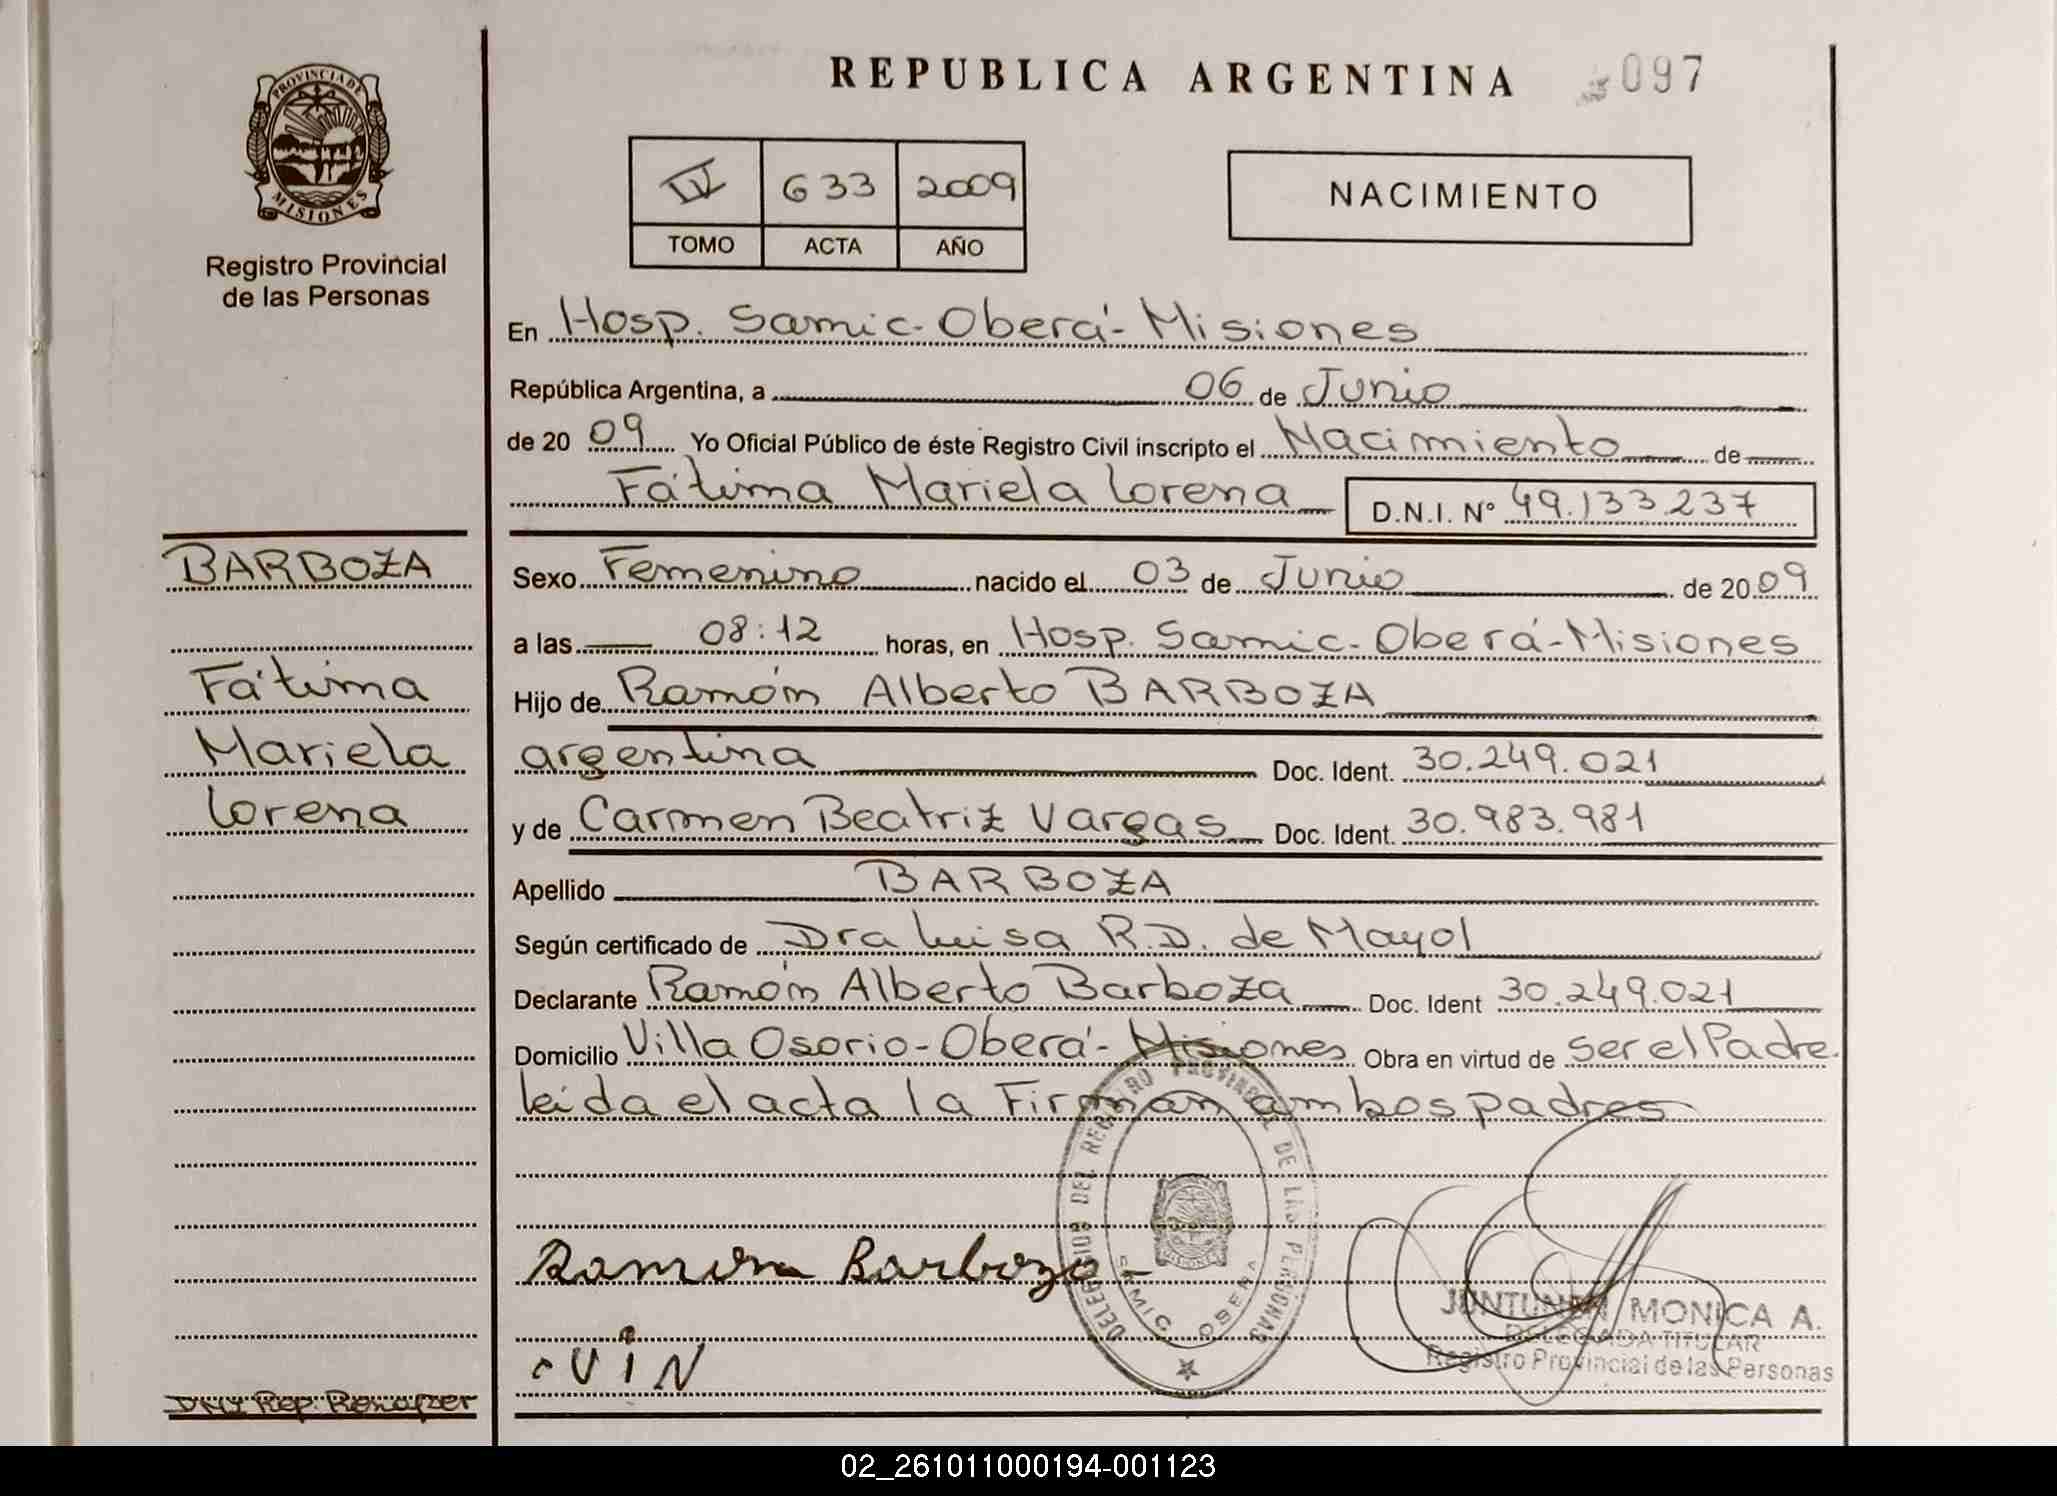 REPUBLICA ARGENTINA 097
PROVINCIA DE
MISIONES
Registro Provincial
de las Personas
633 2009
TOMO ACTA AÑO
NACIMIENTO
En Hosp. Samic-Oberá-Misiones
República Argentina, a 06 de Junio
de 20 09 Yo Oficial Público de éste Registro Civil inscripto el Nacimiento de
Fátima Mariela Lorena D.N.I. N° 49.133.237
BARBOZA
Fátima
Mariela
Lorena
Sexo Femenino nacido el 03 de Junio de 20 09
a las 08:12 horas, en Hosp. Samic-Oberá-Misiones
Hijo de Ramón Alberto BARBOZA
argentina Doc. Ident. 30.249.021
y de Carmen Beatriz Vargas Doc. Ident. 30.983.981
Apellido BARBOZA
Según certificado de Dra Luisa R.D. de Mayol
Declarante Ramón Alberto Barboza Doc. Ident 30.249.021
Domicilio Villa Osorio-Oberá-Misiones Obra en virtud de Ser el Padre.
leida el acta la Firman ambos padres
DELEGACION DEL REGISTRO PROVINCIAL DE LAS PERSONAS
SAMIC OBERA
MISIONES
Ramon Barbozo-
JUNTUNEN MONICA A.
DELEGADA TITULAR
Registro Provincial de las Personas
02_261011000194-001123